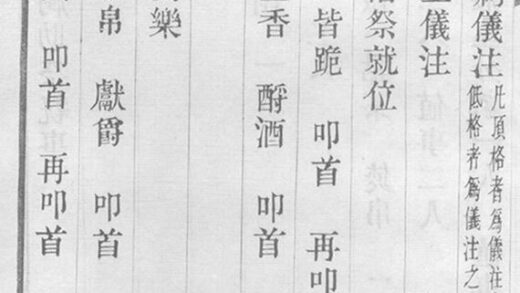 儀注
凡頂格者爲儀注
低格者爲儀注之
儀注
祭就位
皆跪 叩首 再叩
香 酹酒 叩首
樂
帛 獻爵 叩首
叩首 再叩首